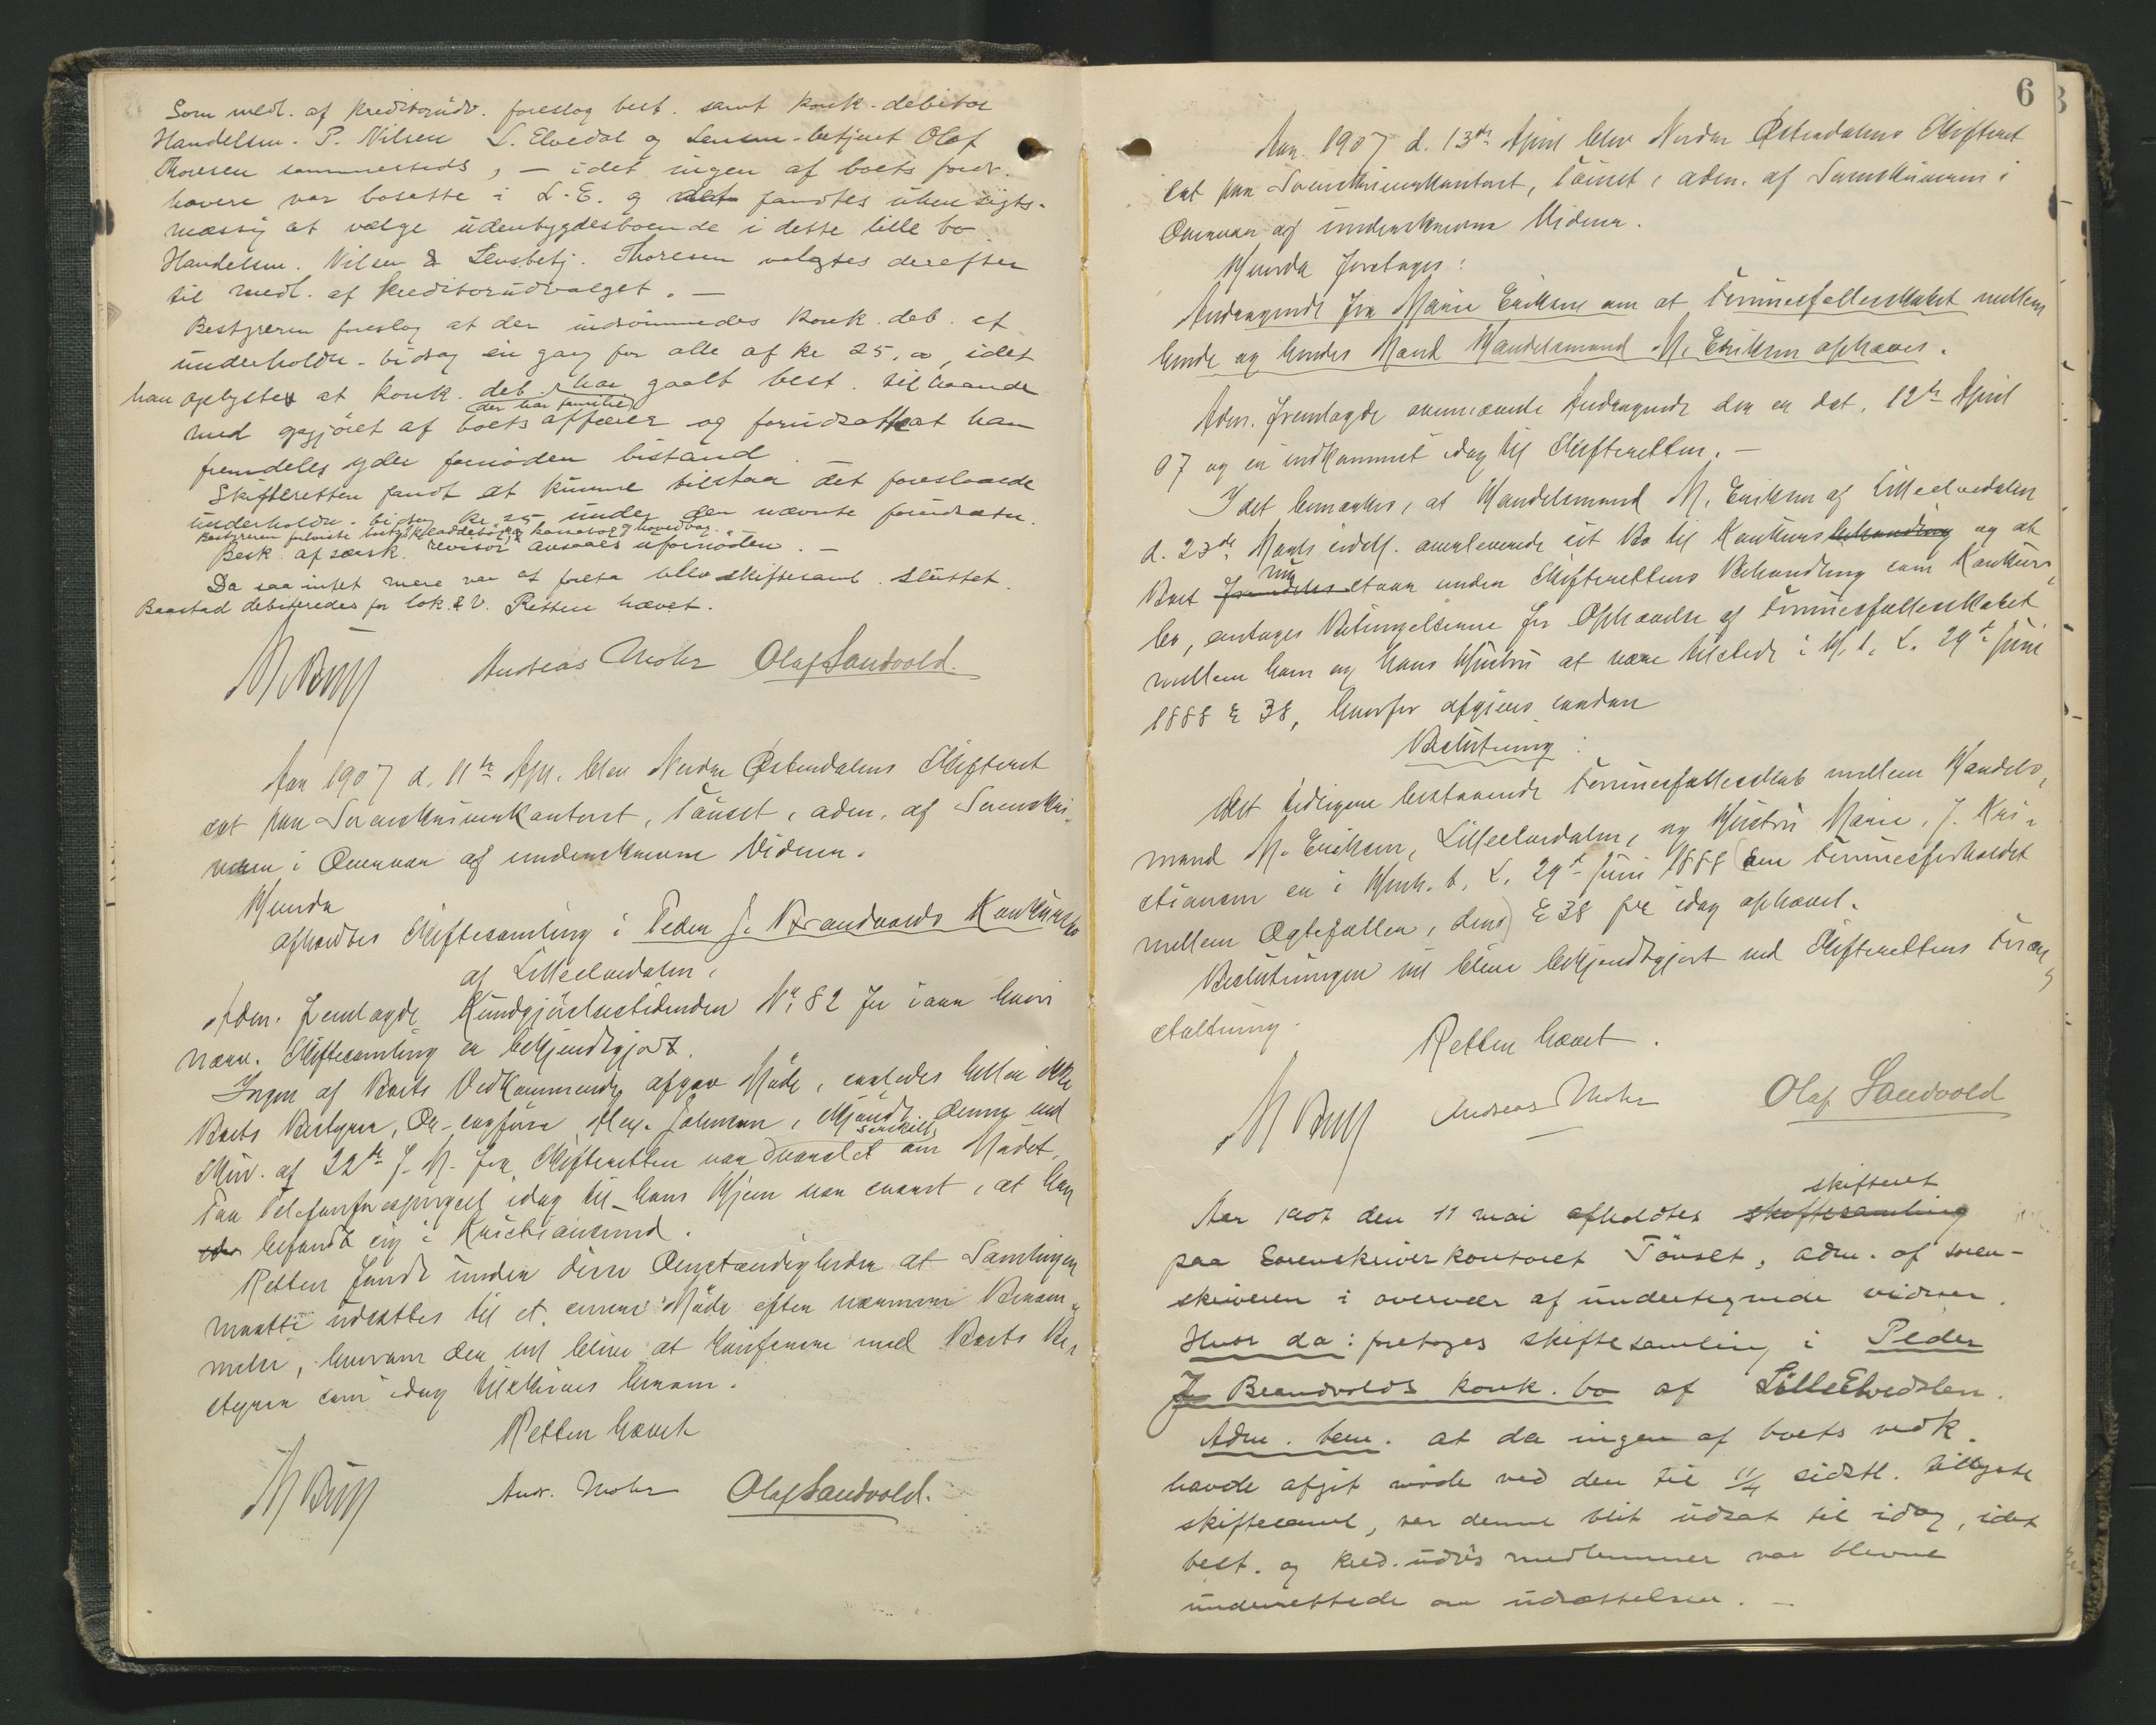 Som medl. af kreditorudv. foreslog best. samt konk-debitor
Handelsm. P. Nilsen L. Elvedal og Lensm-betjent Olaf
Thoresen sammesteds, — idet ingen af boets fordr.
havere var bosatte i L-E. og det fandtes uhensigts-
mæssig at vælge udenbygdesboende i dette lille bo
Handelsm. Nilsen & Lensbetj. Thoresen valgtes derefter
til medl. af kreditorudvalget. —
Bestyreren foreslog at der indrømmedes konk. deb. et
underholdn.-bidrag en gang for alle af kr 25,00, idet
han oplyste at konk. deb. har gaaet best. til haande
der har familie
med opgjøret af boets affærer og forudsat at han
fremdeles yder fornøden bistand.
Skifteretten fandt at kunne tilstaa det foreslaaede
underholdn. bidrag kr 25 under den nævnte forudsætn.
Bestyreren foreviste boets kladdebog kassabog & hovedbog.
Besk. af særsk. revisor ansaaes ufornöden. —
Da saa intet mere var at foreta blev skiftesaml. sluttet.
Baastad debiteredes for lok. & V. Retten hævet.
Andreas Mohr Olaf Sandvold.
Aar 1907 d. 11te Apl. blev Nordre Østerdalens Skifteret
sat paa Sorenskriverkontoret, Tönset, adm. af Sorenskri-
veren i Overvær af underskrevne Vidner.
Hvorda
afholdtes Skiftesamling i Peder J. Brandvolds Konkursbo
af Lilleelvedalen.
Adm. fremlagde Kundgjörelsestidenden No. 82 for iaar hvori
nærv. Skiftesamling er bekjendtgjort.
Ingen af Boets Vedkommende afgav Möde, saaledes heller ikke
Boets Bestyrer, Or.-sagförer Johnsen, skjöndt denne ved
særskilt
Skriv. af 22de f. M. fra Skifteretten var varslet om Mödet.
Paa Telefonforespörgsel idag til hans Hjem var svaret, at han
befandt sig i Kristiansund.
Retten fandt under disse Omstændigheder at Samlingen
maatte udsættes til et senere Möde efter nærmere Beram-
melse, hvorom der vil blive at konferere med Boets Be-
styrer som idag tilskrives herom.
Retten hævet
Andr. Mohr Olaf Sandvold.
6
Aar 1907 d. 13de April blev Nordre Østerdalens Skifteret
sat paa Sorenskriverkontoret, Tönset, adm. af Sorenskriveren i
Overvær af underskrevne Vidner.
Hvorda foretoges:
Andragende fra Marie Eriksen om at Formuesfællesskabet mellem
hende og hendes Mand Handelsmand M. Eriksen ophæves.
Adm. fremlagde ovennævnte Andragende der er dat. 12te April
07 og er indkommet idag til Skifteretten. —
Idet bemærkes, at Handelsmand M. Eriksen af Lilleelvedalen
d. 23de Marts sidstl. overleverede sit Bo til Konkursbehandling og at
nu
Boet fremdeles staar under Skifterettens Behandling som Konkurs-
bo, antages Betingelserne for Ophævelse af Formuesfællesskabet
mellem ham og hans Hustru at være tilstede i H. t. L. 29de Juni
1888 § 38, hvorfor afgives saadan
Beslutning:
Det tidligere bestaaende Formuesfællesskab mellem Handels-
mand M. Eriksen, Lilleelvedalen, og Hustru Marie, f. Kri-
stiansen er i Henh. t. L. 29de Juni 1888 (om Formuesforholdet
mellem Ægtefæller, dens) § 38 fra idag ophævet.
Beslutningen vil blive bekjendtgjort ved Skifterettens Foran-
staltning.
Retten hævet.
Andreas Mohr Olaf Sandvold
skifteret
Aar 1907 den 11 mai afholdtes skiftesamling
paa Sorenskriverkontoret Tönset, adm. af soren-
skriveren i overvær af undertegnede vidner.
Hvor da: foretoges skiftesamling i Peder
J. Brandvolds konk. bo af LilleElvedalen.
Adm. bem. at da ingen af boets vedk.
havde afgit möde ved den til 11/4 sidstl. tillyste
skiftesaml, var denne blit udsat til idag, idet
best. og kred.-udv's medlemmer var blevne
underrettede om udsættelsen. —